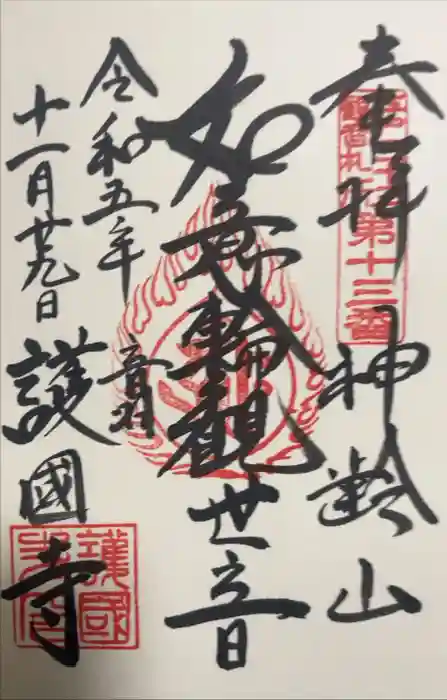 奉拝 神齢山
第十三番
如意輪觀世音
令和五年
音羽
十一月廿九日
護國寺
護國